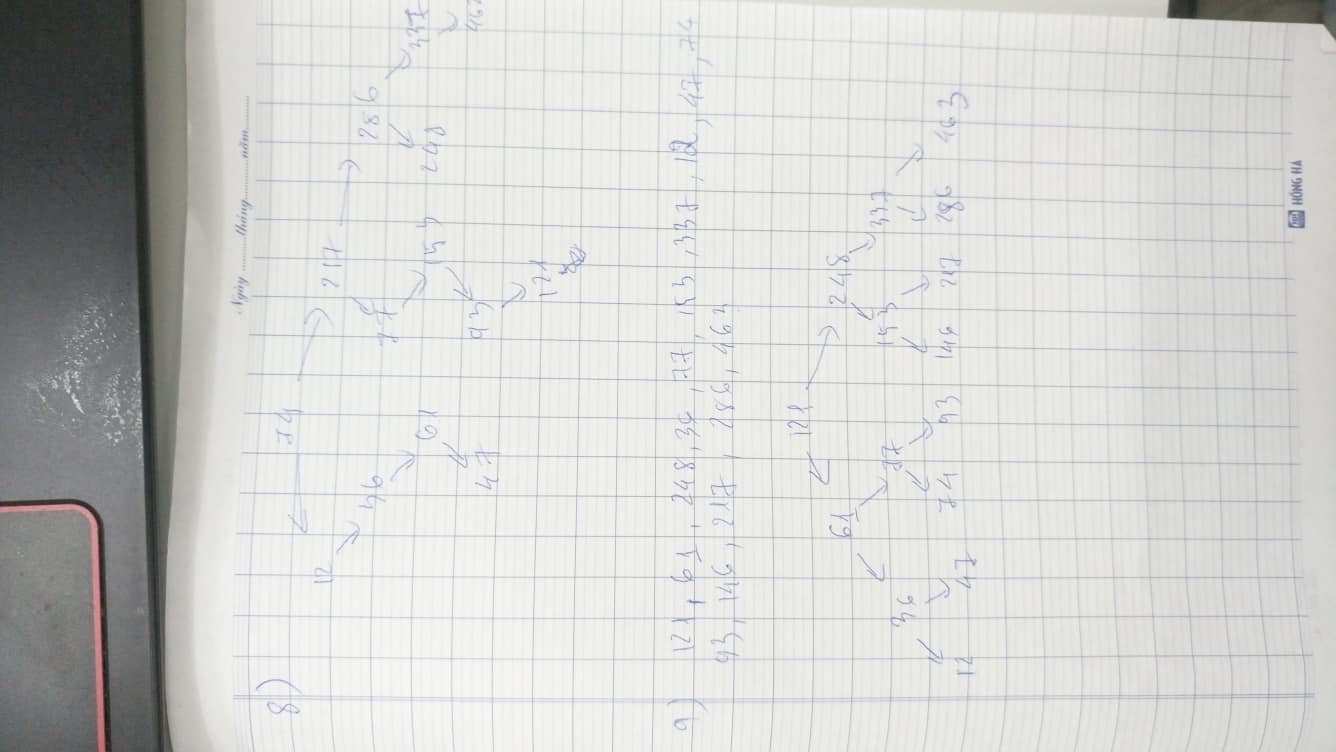 Ngày ........tháng..........năm.........
8) 74
12 217
36 77 286
61 153 248 337
47 93 463
121
9) 121, 61, 248, 36, 77, 153, 337, 12, 47, 74
93, 146, 217, 286, 463
121
61 248
36 77 153 337
12 47 74 93 146 217 286 463
HỒNG HÀ